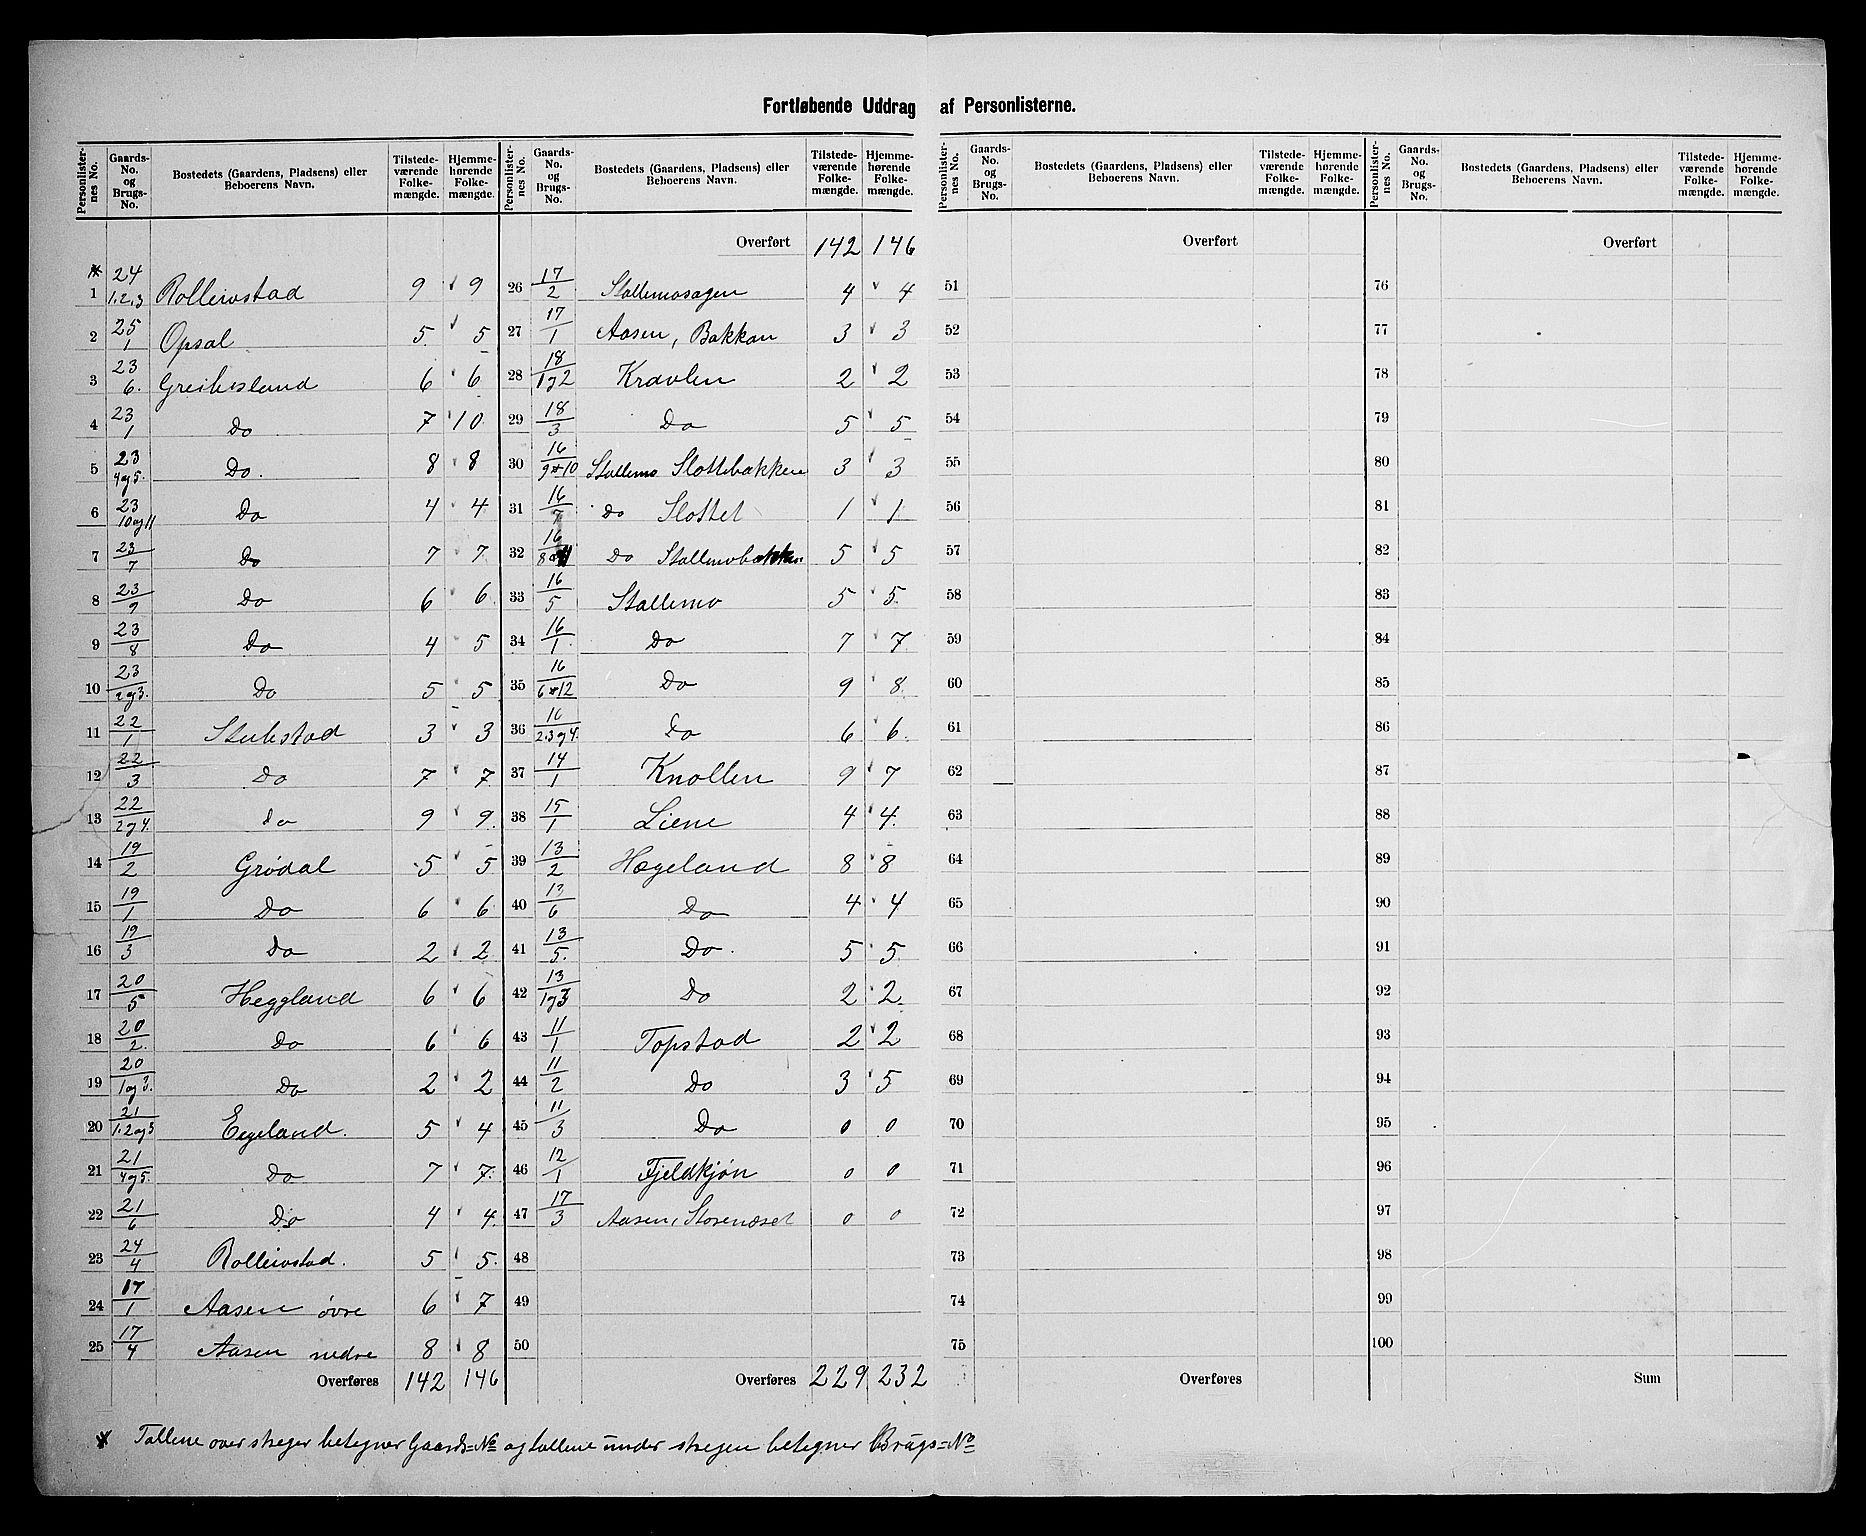 Fortløbende Uddrag af Personlisterne.
Personlister-nes No. | Gaards-No. og Brugs-No. | Bostedets (Gaardens, Pladsens) eller Beboerens Navn. | Tilstede-værende Folke-mængde. | Hjemme-hørende Folke-mængde.
* 1 | 24/1.2.3 | Rolleivstad | 9 | 9
2 | 25/1 | Opsal | 5 | 5
3 | 23/6. | Greibesland | 6 | 6
4 | 23/1 | Do | 7 | 10
5 | 23/4og5. | Do. | 8 | 8
6 | 23/10og11 | Do | 4 | 4
7 | 23/7 | Do | 7 | 7
8 | 23/9 | Do | 6 | 6
9 | 23/8 | Do | 4 | 5
10 | 23/2og3. | Do | 5 | 5
11 | 22/1 | Stubstad | 3 | 3
12 | 22/3 | Do | 7 | 7
13 | 22/2og4. | do | 9 | 9
14 | 19/2 | Grødal | 5 | 5
15 | 19/1 | Do | 6 | 6
16 | 19/3 | Do | 2 | 2
17 | 20/5 | Heggland | 6 | 6
18 | 20/2. | Do | 6 | 6
19 | 20/1og3. | Do | 2 | 2
20 | 21/1.2og3 | Eegeland. | 5 | 4
21 | 21/4og5. | Do | 7 | 7
22 | 21/6 | Do | 4 | 4
23 | 24/4 | Rolleivstad. | 5 | 5
24 | 17/1 | Aasen øvre | 6 | 7
25 | 17/4 | Aasen nedre | 8 | 8
Overføres 142 146
Personlister-nes No. | Gaards-No. og Brugs-No. | Bostedets (Gaardens, Pladsens) eller Beboerens Navn. | Tilstede-værende Folke-mængde. | Hjemme-hørende Folke-mængde.
Overført 142 146
26 | 17/2 | Stallemosagen | 4 | 4
27 | 17/1 | Aasen, Bakkan | 3 | 3
28 | 18/1og2 | Kravlen | 2 | 2
29 | 18/3 | Do | 5 | 5
30 | 16/9*10 | Stallemo Slottebakken | 3 | 3
31 | 16/7 | Do Slottet | 1 | 1
32 | 16/8 | Do Stallemobakken | 5 | 5
33 | 16/5 | Stallemo | 5 | 5
34 | 16/1. | Do | 7 | 7
35 | 16/6*12 | Do | 9 | 8
36 | 16/2.3og4. | Do | 6 | 6
37 | 14/1 | Knollen | 9 | 7
38 | 15/1 | Liene | 4 | 4
39 | 13/2 | Hægeland | 8 | 8
40 | 13/6 | Do | 4 | 4
41 | 13/5. | Do. | 5 | 5
42 | 13/1og3 | Do | 2 | 2
43 | 11/1 | Topstad | 2 | 2
44 | 11/2 | Do | 3 | 5
45 | 11/3 | Do | 0 | 0
46 | 12/1 | Fjeldkjøn | 0 | 0
47 | 17/3 | Aasen, Storenæset | 0 | 0
48
49
50
Overføres 229 232
Personlister-nes No. | Gaards-No. og Brugs-No. | Bostedets (Gaardens, Pladsens) eller Beboerens Navn. | Tilstede-værende Folke-mængde. | Hjemme-hørende Folke-mængde.
Overført
51
52
53
54
55
56
57
58
59
60
61
62
63
64
65
66
67
68
69
70
71
72
73
74
75
Overføres
Personlister-nes No. | Gaards-No. og Brugs-No. | Bostedets (Gaardens, Pladsens) eller Beboerens Navn. | Tilstede-værende Folke-mængde. | Hjemme-hørende Folke-mængde.
Overført
76
77
78
79
80
81
82
83
84
85
86
87
88
89
90
91
92
93
94
95
96
97
98
99
100
Sum
* Tallene over streger betegner Gaards=No og tallene under stregen betegner Brugs=No